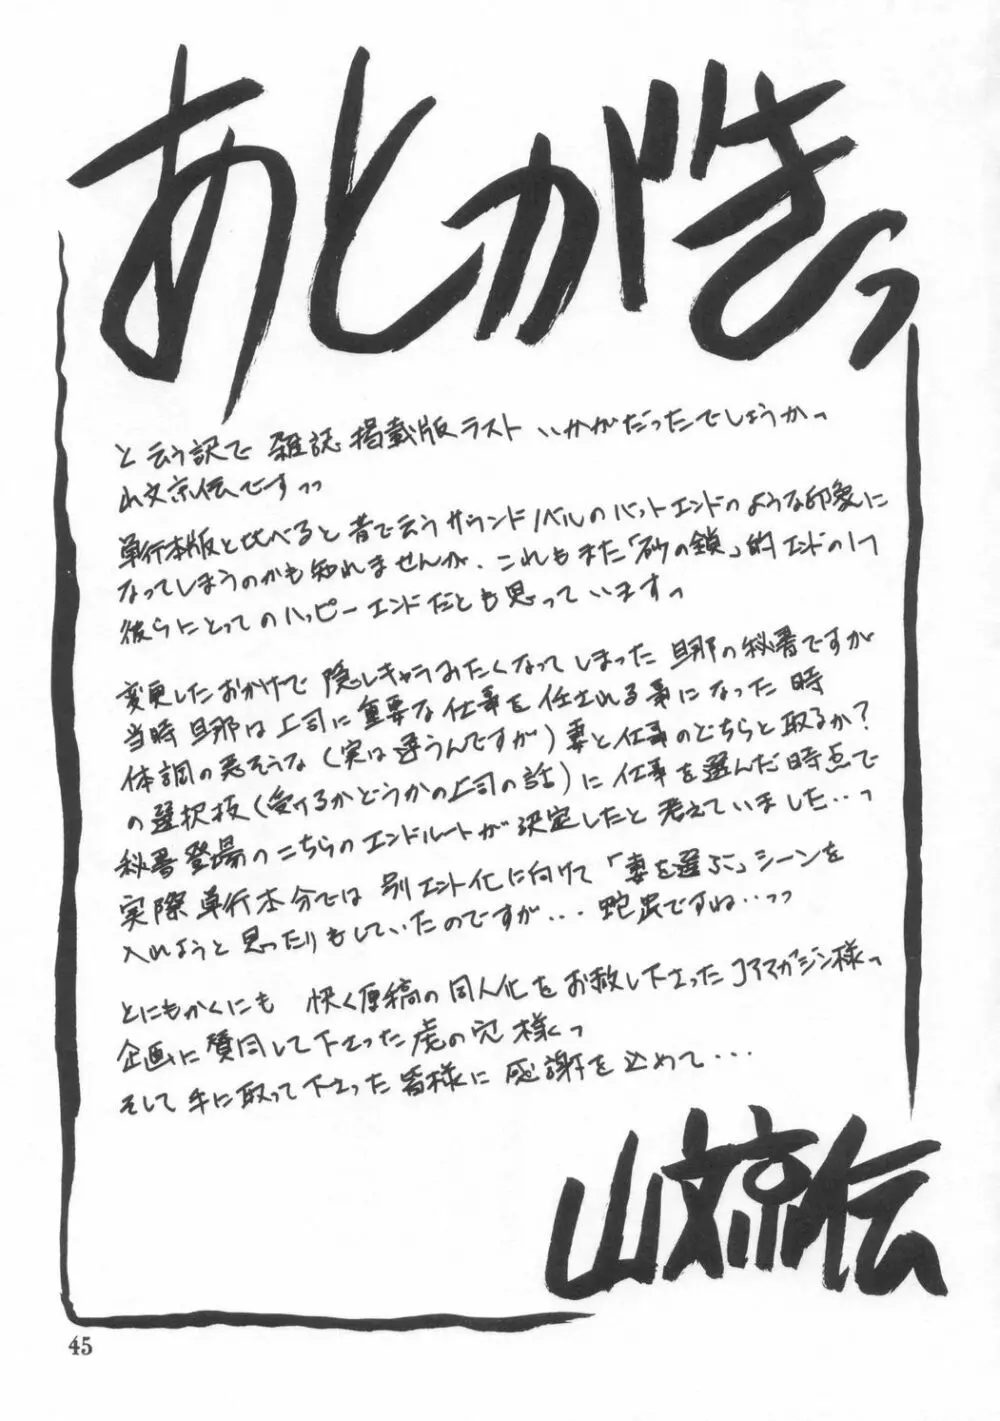 あとがきっ
と云う訳で 雑誌掲載版ラスト いかがだったでしょうかっ
山文京伝ですっっ
単行本版と比べると 昔で云うサウンドノベルのバットエンドのような印象に
なってしまうのかも知れませんが、これもまた「砂の鎖」的エンドの1つ
彼らにとってのハッピーエンドだとも思っていますっ
変更したおかげで 隠しキャラみたくなってしまった 旦那の秘書ですが
当時 旦那は上司に重要な仕事を任される事になった時
体調の悪そうな(実は違うんですが)妻と仕事のどちらと取るか?
の選択枝(受けるかどうかの上司の話)に 仕事を選んだ時点で
秘書登場のこちらのエンドルートが決定したと 考えていました…っ
実際 単行本分では 別エンド化に向けて「妻を選ぶ」シーンを
入れようと思ったりもしていたのですが... 蛇足ですね…っっ
とにもかくにも 快く原稿の同人化をお赦し下さったコアマガジン様っ
企画に賛同して下さった虎の穴様っ
そして 手に取って下さった皆様に 感謝を込めて...
山文京伝
45